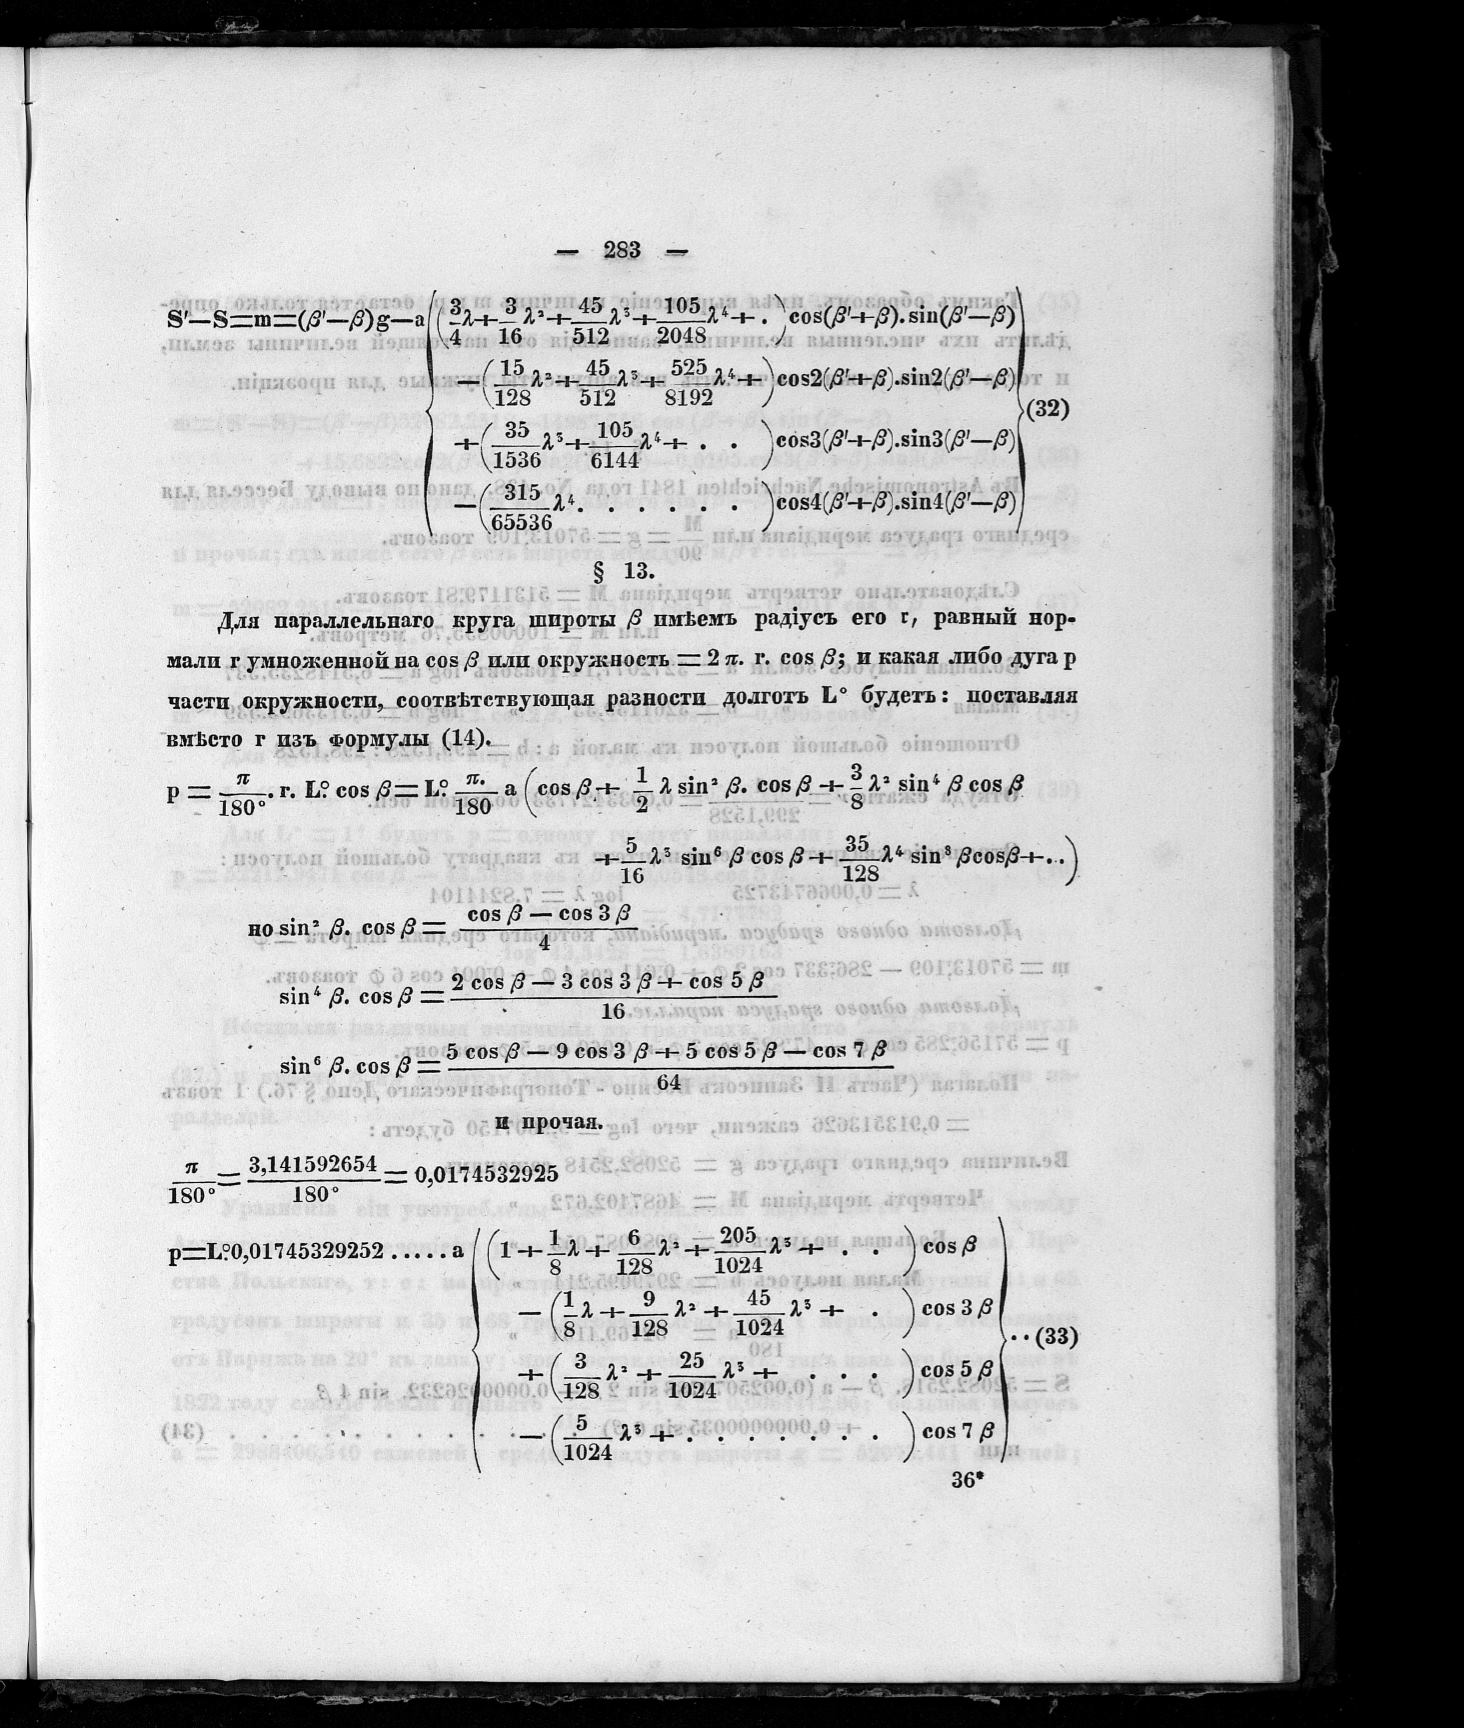 — 283 —
S′—S=m=(β′—β)g—a{(3/4 λ+3/16 λ²+45/512 λ³+105/2048 λ⁴+. ) cos(β′+β).sin(β′—β)
—(15/128 λ²+45/512 λ³+525/8192 λ⁴+ ) cos2(β′+β).sin2(β′—β)
+(35/1536 λ³+105/6144 λ⁴+ . . ) cos3(β′+β).sin3(β′—β)
—(315/65536 λ⁴. . . . . . ) cos4(β′+β).sin4(β′—β)} (32)
§ 13.
Для параллельнаго круга широты β имѣемъ радіусъ его r, равный нор-
мали r умноженной на cos β или окружность = 2 π. r. cos β; и какая либо дуга p
части окружности, соотвѣтствующая разности долготъ L° будетъ: поставляя
вмѣсто r изъ формулы (14).
p = π/180° . r. L.° cos β = L.° π./180 a (cos β + 1/2 λ sin² β. cos β + 3/8 λ² sin⁴ β cos β
+ 5/16 λ³ sin⁶ β cos β + 35/128 λ⁴ sin⁸ β cos β + . . )
но sin² β. cos β = (cos β — cos 3 β)/4
sin⁴ β. cos β = (2 cos β — 3 cos 3 β + cos 5 β)/16
sin⁶ β. cos β = (5 cos β — 9 cos 3 β + 5 cos 5 β — cos 7 β)/64
и прочая.
π/180° = 3,141592654/180° = 0,0174532925
p=L.°0,01745329252 . . . . . a {(1 + 1/8 λ + 6/128 λ² + 205/1024 λ³ + . . ) cos β
— (1/8 λ + 9/128 λ² + 45/1024 λ³ + . ) cos 3 β
+ (3/128 λ² + 25/1024 λ³ + . . . ) cos 5 β
— (5/1024 λ³ + . . . . . . . ) cos 7 β} . . (33)
36*